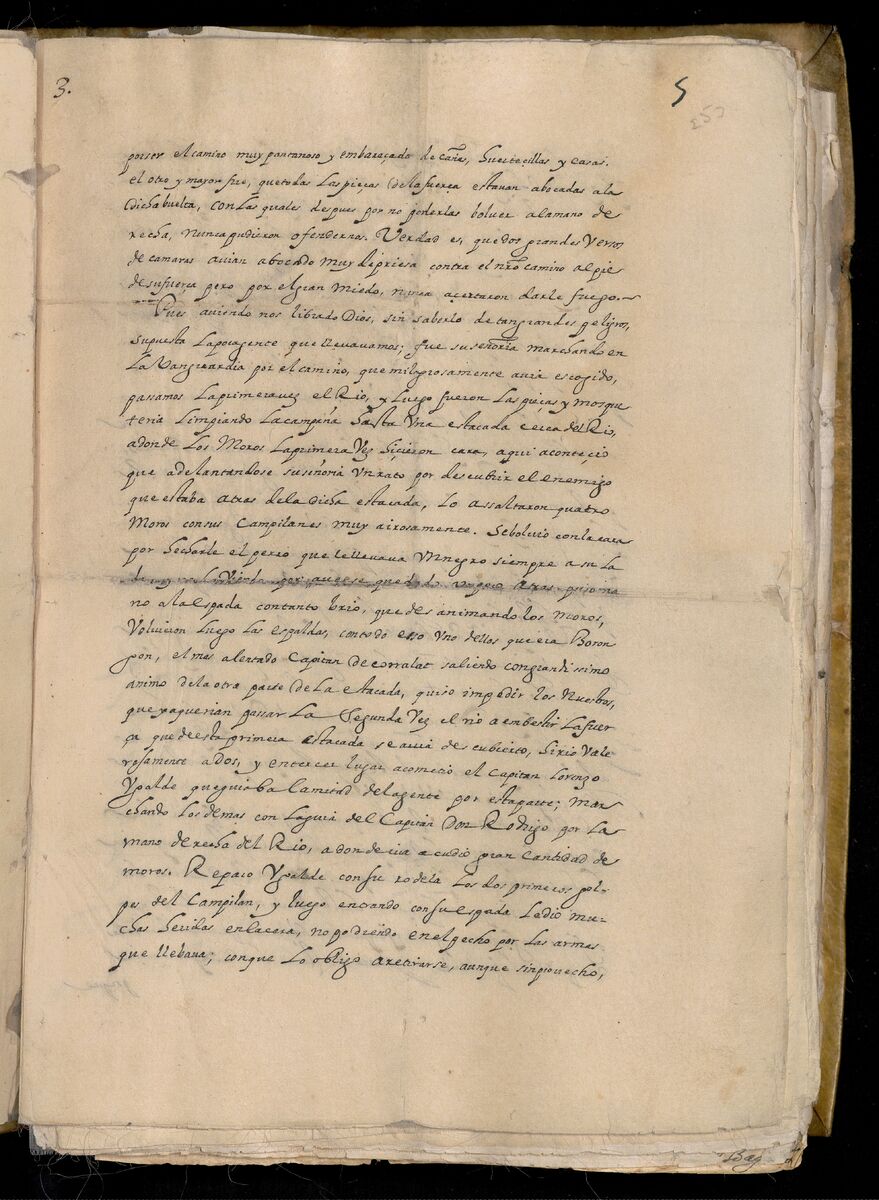 3.
5
253
por ser el camino muy pantanoso y embaraçado de cañas, huertecillas y casas.
el otro y mayor fue, que todas las pieças de la fuerça estavan abocadas a la
dicha buelta, con las quales despues por no poderlas bolver a la mano de
recha, nunca pudieron ofendernos. Verdad es, que dos grandes Versos
de camaras avian abocado muy de priesa contra el nr̃o camino al pie
de su fuerça pero por el gran miedo, nunca acertaron darle fuego.~
Pues aviendo nos librado Dios, sin saberlo de tan grandes peligros,
supuesta la poca gente que llevavamos; fue su señoria marchando en
la Vanguardia por el camino, que milagrosamente avia escogido,
passamos la primera vez el Rio, y luego fueron las pieças y mosque
teria limpiando la campaña hasta Una estacada cerca del Rio,
adonde los Moros la primera Vez hiçieron cara, aqui aconteçio
que adelantandose su señoria Un rato por descubrir el enemigo
que estaba atras de la dicha estacada, lo assaltaron quatro
Moros con sus Campilanes muy airosamente. Se bolvio con la cara
por hecharle el perro que le llevava Un negro siempre a su la
do y no le Viendo por averse quedado Un poco atras, puso ma
no a la espada con tanto brio, que desanimando los Moros,
Volvieron luego las espaldas, con todo esso Uno dellos que era Boron
gon, el mas alentado Capitan de corralat saliendo con grandissimo
animo de la otra parte de la estacada, quiso impedir los Nuestros,
que ya querian passar la Segunda Vez el rio a embestir la fuer
ça que de esta primera estacada se avia descubierto, hirio Vale
rosamente a dos, y en tercer lugar acometio el Capitan Lorenço
Ugalde que guiaba la mitad de la gente por esta parte; mar
chando los demas con la guia del Capitan Don Rodrigo por la
mano derecha del Rio, a donde iva acudio gran cantidad de
moros. Reparo Ugalde con su rodela los dos primeros gol-
pes del Campilan, y luego entrando con su espada le dio mu-
chas heridas en la cara, no podiendo en el pecho por las armas
que llebava; con que lo obligo a retirarse, aunque sin provecho,